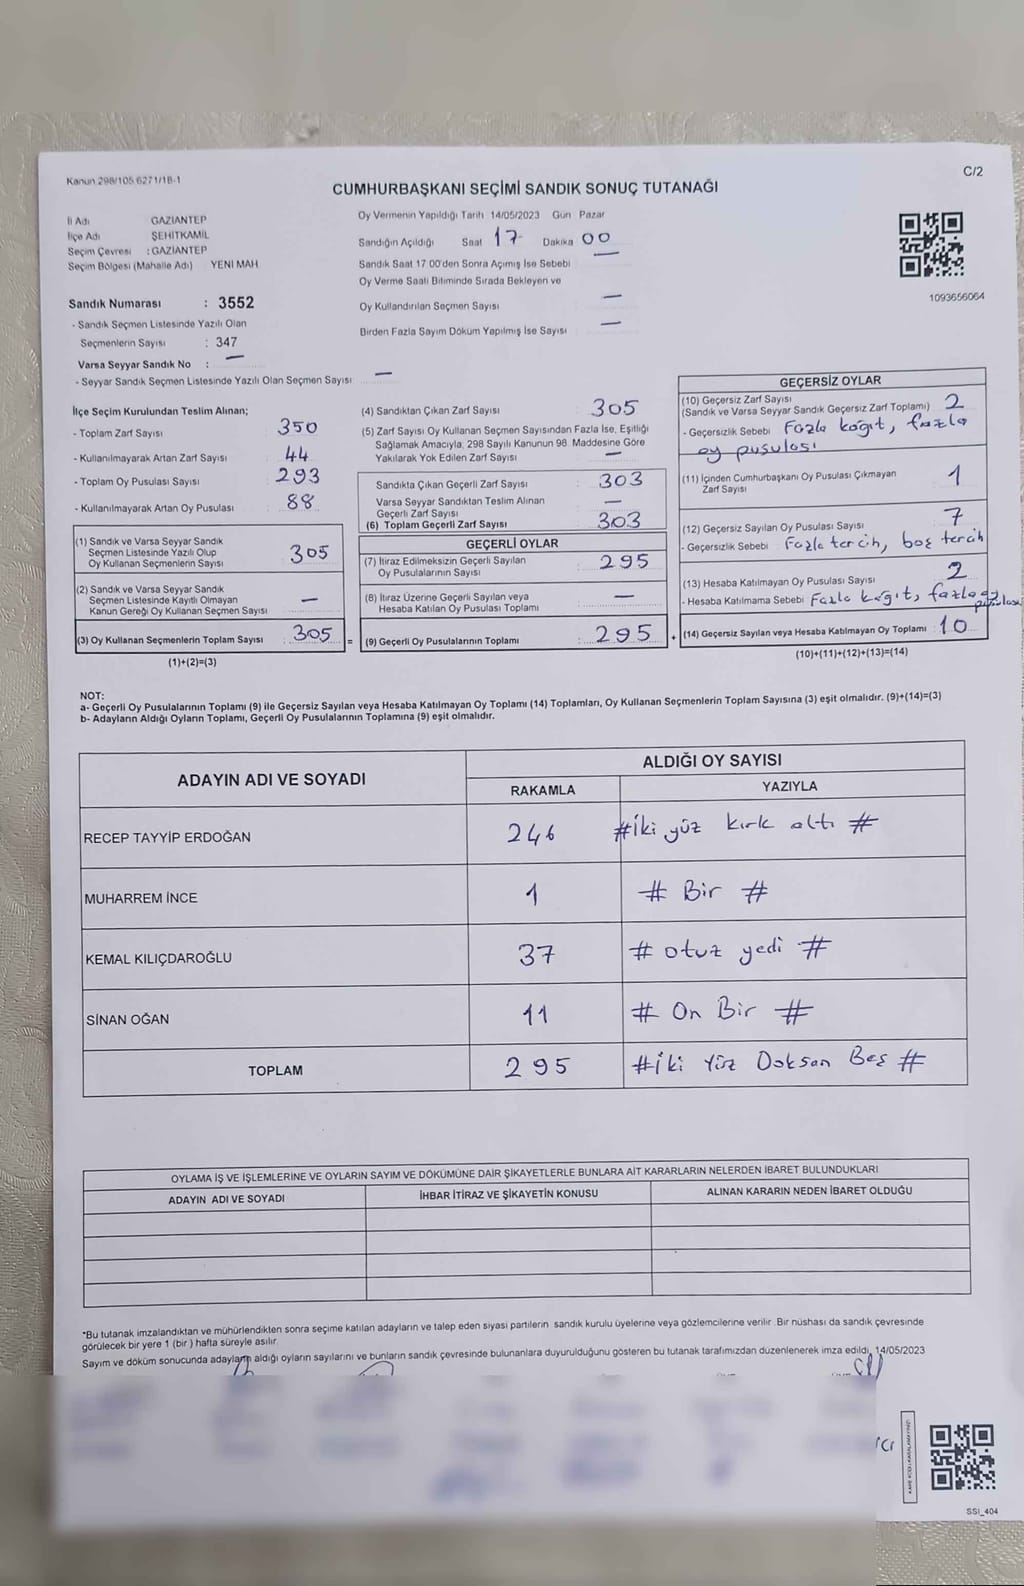 Kanun 298/105 6271/18-1
C/2
CUMHURBAŞKANI SEÇİMİ SANDIK SONUÇ TUTANAĞI
İl Adı GAZİANTEP
İlçe Adı ŞEHİTKAMİL
Seçim Çevresi : GAZİANTEP
Seçim Bölgesi (Mahalle Adı) YENİ MAH
Sandık Numarası : 3552
- Sandık Seçmen Listesinde Yazılı Olan
Seçmenlerin Sayısı : 347
Varsa Seyyar Sandık No : —
- Seyyar Sandık Seçmen Listesinde Yazılı Olan Seçmen Sayısı —
Oy Vermenin Yapıldığı Tarih 14/05/2023 Gün Pazar
Sandığın Açıldığı Saat 17 Dakika 00
Sandık Saat 17.00'den Sonra Açımış İse Sebebi —
Oy Verme Saati Bitiminde Sırada Bekleyen ve
Oy Kullandırılan Seçmen Sayısı —
Birden Fazla Sayım Döküm Yapılmış İse Sayısı —
1093656064
İlçe Seçim Kurulundan Teslim Alınan;
- Toplam Zarf Sayısı 350
- Kullanılmayarak Artan Zarf Sayısı 44
- Toplam Oy Pusulası Sayısı 293
- Kullanılmayarak Artan Oy Pusulası 88
(1) Sandık ve Varsa Seyyar Sandık
Seçmen Listesinde Yazılı Olup
Oy Kullanan Seçmenlerin Sayısı 305
(2) Sandık ve Varsa Seyyar Sandık
Seçmen Listesinde Kayıtlı Olmayan
Kanun Gereği Oy Kullanan Seçmen Sayısı —
(3) Oy Kullanan Seçmenlerin Toplam Sayısı 305 =
(1)+(2)=(3)
(4) Sandıktan Çıkan Zarf Sayısı : 305
(5) Zarf Sayısı Oy Kullanan Seçmen Sayısından Fazla İse, Eşitliği
Sağlamak Amacıyla, 298 Sayılı Kanunun 98. Maddesine Göre
Yakılarak Yok Edilen Zarf Sayısı —
Sandıkta Çıkan Geçerli Zarf Sayısı : 303
Varsa Seyyar Sandıktan Teslim Alınan
Geçerli Zarf Sayısı —
(6) Toplam Geçerli Zarf Sayısı : 303
GEÇERLİ OYLAR
(7) İtiraz Edilmeksizin Geçerli Sayılan
Oy Pusulalarının Sayısı : 295
(8) İtiraz Üzerine Geçerli Sayılan veya
Hesaba Katılan Oy Pusulası Toplamı : —
(9) Geçerli Oy Pusulalarının Toplamı : 295 +
GEÇERSİZ OYLAR
(10) Geçersiz Zarf Sayısı
(Sandık ve Varsa Seyyar Sandık Geçersiz Zarf Toplamı) 2
- Geçersizlik Sebebi Fazla kağıt, fazla
oy pusulası
(11) İçinden Cumhurbaşkanı Oy Pusulası Çıkmayan
Zarf Sayısı 1
(12) Geçersiz Sayılan Oy Pusulası Sayısı 7
- Geçersizlik Sebebi Fazla tercih, boş tercih
(13) Hesaba Katılmayan Oy Pusulası Sayısı 2
- Hesaba Katılmama Sebebi Fazla kağıt, fazla oy
pusulası
(14) Geçersiz Sayılan veya Hesaba Katılmayan Oy Toplamı : 10
(10)+(11)+(12)+(13)=(14)
NOT:
a- Geçerli Oy Pusulalarının Toplamı (9) ile Geçersiz Sayılan veya Hesaba Katılmayan Oy Toplamı (14) Toplamları, Oy Kullanan Seçmenlerin Toplam Sayısına (3) eşit olmalıdır. (9)+(14)=(3)
b- Adayların Aldığı Oyların Toplamı, Geçerli Oy Pusulalarının Toplamına (9) eşit olmalıdır.
ADAYIN ADI VE SOYADI
ALDIĞI OY SAYISI
RAKAMLA YAZIYLA
RECEP TAYYİP ERDOĞAN 246 #İki yüz kırk altı #
MUHARREM İNCE 1 # Bir #
KEMAL KILIÇDAROĞLU 37 # otuz yedi #
SİNAN OĞAN 11 # On Bir #
TOPLAM 295 #İki Yüz Doksan Beş #
OYLAMA İŞ VE İŞLEMLERİNE VE OYLARIN SAYIM VE DÖKÜMÜNE DAİR ŞİKAYETLERLE BUNLARA AİT KARARLARIN NELERDEN İBARET BULUNDUKLARI
ADAYIN ADI VE SOYADI İHBAR İTİRAZ VE ŞİKAYETİN KONUSU ALINAN KARARIN NEDEN İBARET OLDUĞU
*Bu tutanak imzalandıktan ve mühürlendikten sonra seçime katılan adayların ve talep eden siyasi partilerin sandık kurulu üyelerine veya gözlemcilerine verilir. Bir nüshası da sandık çevresinde
görülecek bir yere 1 (bir) hafta süreyle asılır.
Sayım ve döküm sonucunda adayların aldığı oyların sayılarını ve bunların sandık çevresinde bulunanlara duyurulduğunu gösteren bu tutanak tarafımızdan düzenlenerek imza edildi. 14/05/2023
SSI_404